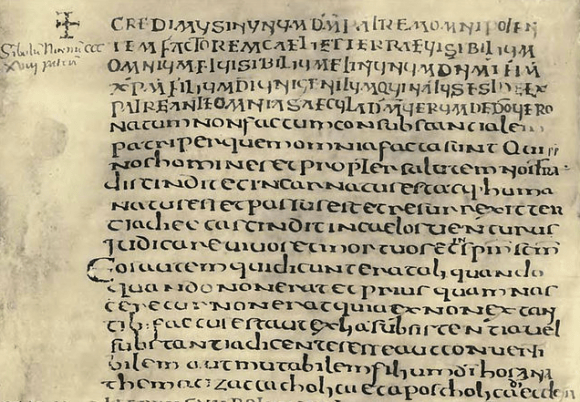 Sibolu Nicenu CCC
XViii patru
CREDIMUS IN UNUM DM PATREM OMNIPOTEN
TEM FACTOREM CAELI ET TERRAE UISIBILIUM
OMNIUM ET IUISIBILIUM ET IN UNUM DNM IHM
XPM FILIUM DI UNIGENITUM QUI NATUS EST EX
PATRE ANTE OMNIA SAECULA DM UERUM DE DO UERO
natum non factum consubstantialem
patri per quem omnia facta sunt Qui pp
nos homines et propter salutem nostra
discindit et incarnatus est atq huma
natus est et passus est et resurrexit ter
tia die et ascindit in caelos uenturus
judicare uiuos et mortuos et in spm scm
Eos autem qui dicunt erat aliquando
quando non erat et prius quam nas
ceretur non erat quia ex non extan
tib: factus est aut ex alia subsistentia uel
substantia dicentes esse aut conuerti
bilem aut mutabilem filium di hos ana
themazat catholica et apostholica di eclesia